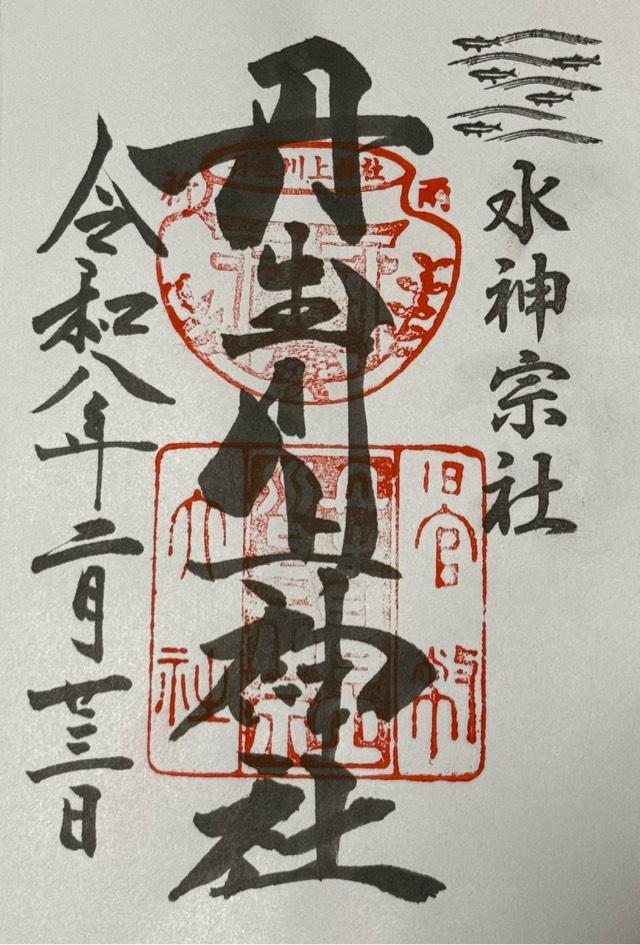 水神宗社
丹生川上神社
令和八年二月廿三日
丹生川上神社
祈
雨
旧官幣
大社